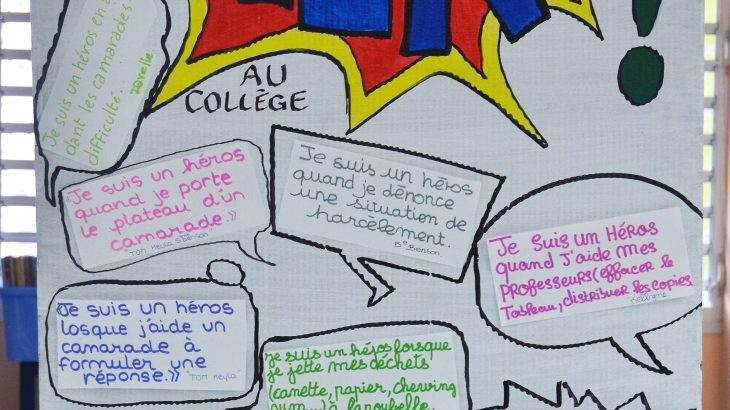 AU
COLLÈGE
Je suis un héros en
dant les camarades
difficulté.
"Je suis un héros
quand je porte
le plateau d'un
camarade.»
Je suis un héros
quand je dénonce
une situation de
harcèlement.
Je suis un Héros
quand J'aide mes
Professeurs (effacer le
Tableau, distribuer les copies.
«Je suis un héros
losque j'aide un
camarade à
formuler une
réponse.»
Je suis un héros lorsque
je jette mes déchets
(canette, papier, chewing
gum) à la poubelle.